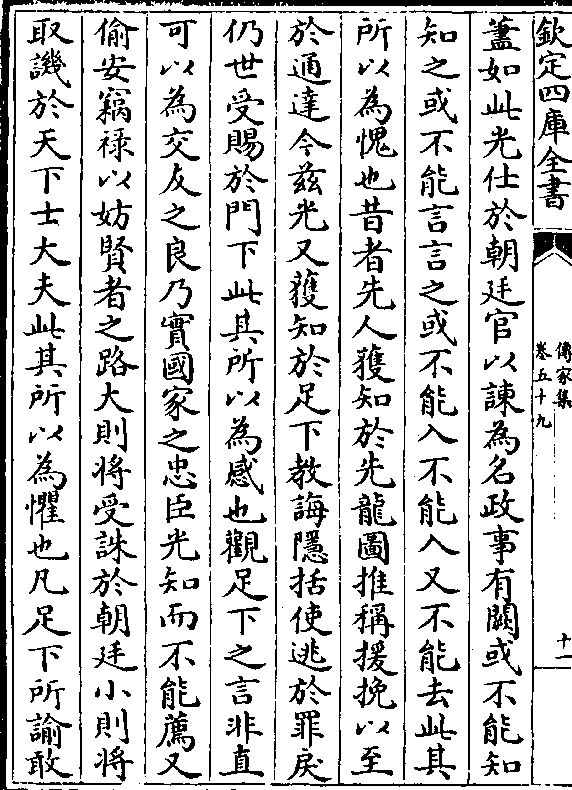 欽定四庫全書
傳家集
卷五十九
十一
葢如此光仕於朝廷官以諫為名政事有闕或不能知
知之或不能言言之或不能入不能入又不能去此其
所以為愧也昔者先人獲知於先龍圖推稱援挽以至
於通達今兹光又獲知於足下教誨隱括使逃於罪戾
仍世受賜於門下此其所以為感也觀足下之言非直
可以為交友之良乃實國家之忠臣光知而不能薦又
偷安竊禄以妨賢者之路大則将受誅於朝廷小則将
取譏於天下士大夫此其所以為懼也凡足下所諭敢